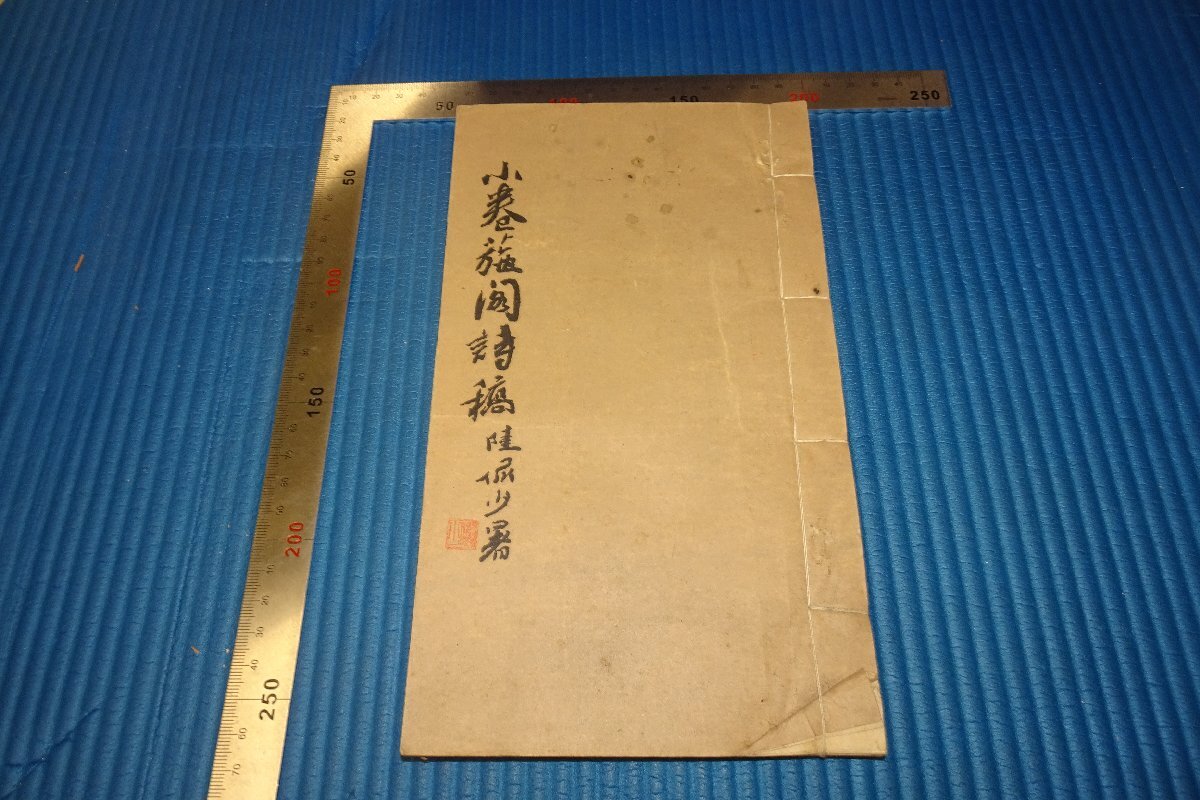 50 150 200 250
50
100
150
200
250
小卷葹閣詩稿 陸儼少署